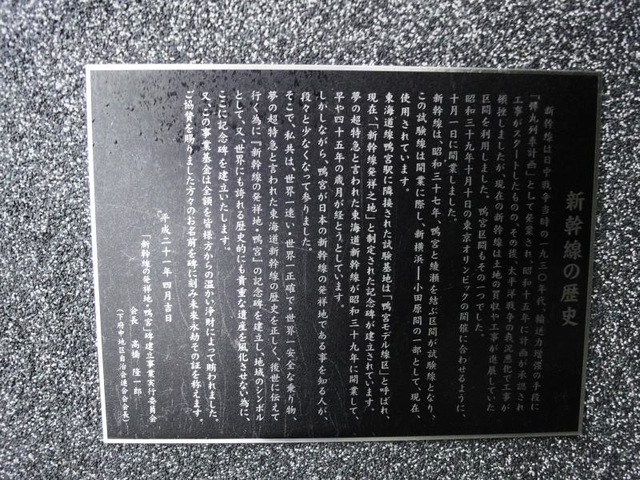 新幹線の歴史
新幹線は日中戦争当時の一九三〇年代、輸送力増強の手段に
「弾丸列車計画」として発案され、昭和十五年に計画が承認され
工事がスタートしたものの、その後、太平洋戦争の戦況悪化で工事が
頓挫しましたが、現在の新幹線は土地の買収や工事が進展していた
区間を利用しました。鴨宮区間もその一つでした。
昭和三十九年十月十日の東京オリンピックの開催に合わせるように、
十月一日に開業しました。
新幹線は、昭和三十七年、鴨宮と綾瀬を結ぶ区間が試験線となり、
この試験線は開業に際し、新横浜―小田原間の一部として、現在
使用されています。
東海道線鴨宮駅に隣接された試験基地は「鴨宮モデル線区」と呼ばれ、
現在、「新幹線発祥之地」と制定された記念碑が建立されています。
夢の超特急と言われた東海道新幹線が昭和三十九年に開業して、
早や四十五年の歳月が経とうとしています。
しかしながら、鴨宮が日本の新幹線の発祥地である事を知る人が、
段々と少なくなって参りました。
そこで、私共は、世界一速い・世界一正確で・世界一安全な乗り物、
夢の超特急と言われた東海道新幹線の歴史を正しく、後世に伝えて
行く為に『新幹線の発祥地・鴨宮』の記念碑を建立し、地域のシンボル
として、又、世界にも誇れる歴史的にも貴重な遺産を風化させない為に、
ここに記念碑を建立いたします。
又、この事業基金は全額を皆様方からの温かい浄財によって賄われました。
ご協賛を賜りました方々のお名前を碑に刻み未来永劫その証を称えます。
平成二十一年四月吉日
「新幹線の発祥地・鴨宮」碑建立事業実行委員会
会長 高橋隆一郎
(下府中地区自治会連合会会長)